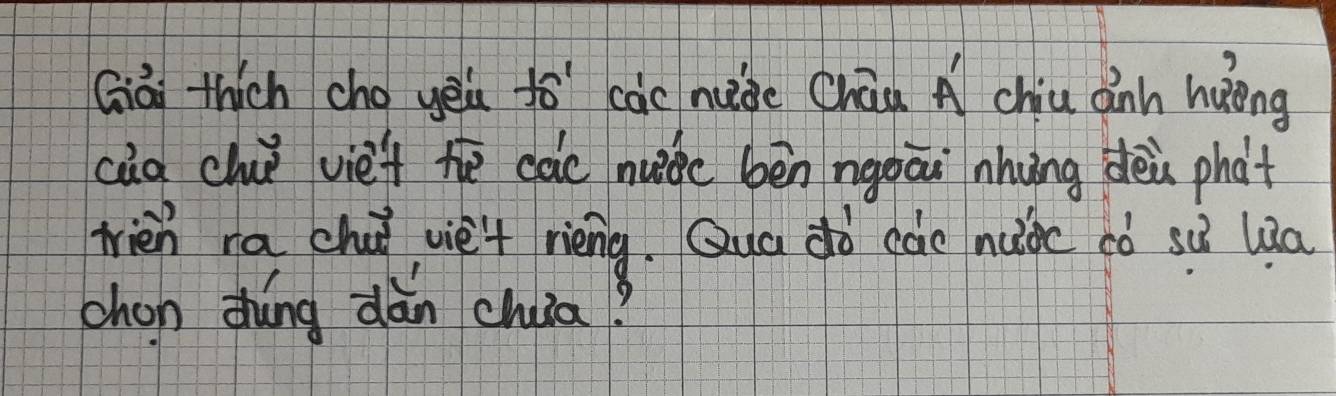 Giải thích cho yếu tố các nước Châu Á chịu ảnh hưởng
của chữ viết từ các nước bên ngoài nhưng đều phát
triển ra chữ viết riêng. Qua đó các nước có sự lựa
chọn đúng dắn chưa?